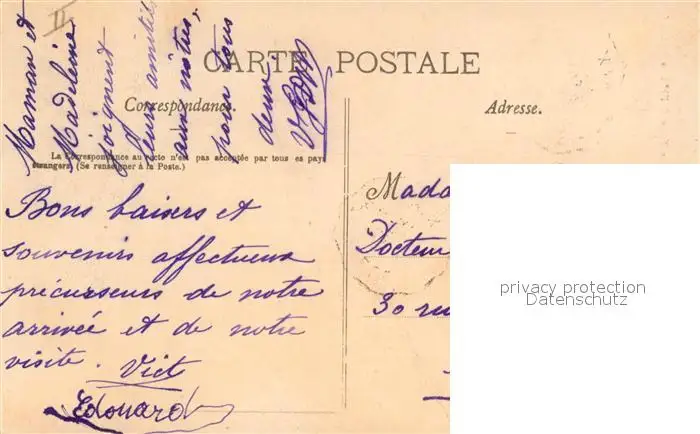 II
Maman et
Madeleine
joignent
leurs amitiés
aux nôtres,
pour tous
deux
CARTE POSTALE
Correspondance.
Adresse.
La Correspondance au recto n'est pas acceptée par tous es pays
étrangers (Se renseigner à la Poste.)
Bons baisers et
souvenirs affectueux
précurseurs de notre
arrivée et de notre
visite. Vict
Edouard
Mada
Docteur
30 ru
privacy protection
Datenschutz